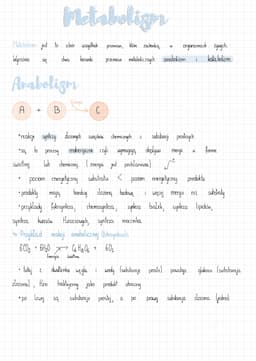 Metabolizm
Metabolizm jest to zbiór wszystkich przemian, które zachodzą w organizmach żywych.
Wyróżnia się dwa kierunki przemian metabolicznych anabolizm i katabolizm.
Anabolizm
A + B → C
•reakcje syntezy złożonych związków chemicznych z substancji prostych
•są to procesy endoergiczne czyli wymagają dopływu energii w formie
świetlnej lub chemicznej. (energia jest pochłaniana)
• poziom energetyczny substratu < poziom energetyczny produktu
•produkty mają bardziej złożoną budowę i więcej energii niż substraty
•przykłady: fotosynteza, chemosynteza, synteza białek, synteza lipidów,
synteza kwasów tłuszczowych, synteza mocznika.
↳ Przykład reakcji anabolicznej (fotosynteza)
6CO₂ + 6H₂O → C₆H₁₂O₆ + 6O₂
energia świetlna
• tutaj z dwutlenku węgla i wody (substancje proste) powstaje glukoza (substancja
złożona) tlen traktujemy jako produkt uboczny
•po lewej są substancje proste, a po prawej substancja złożona (jedna)